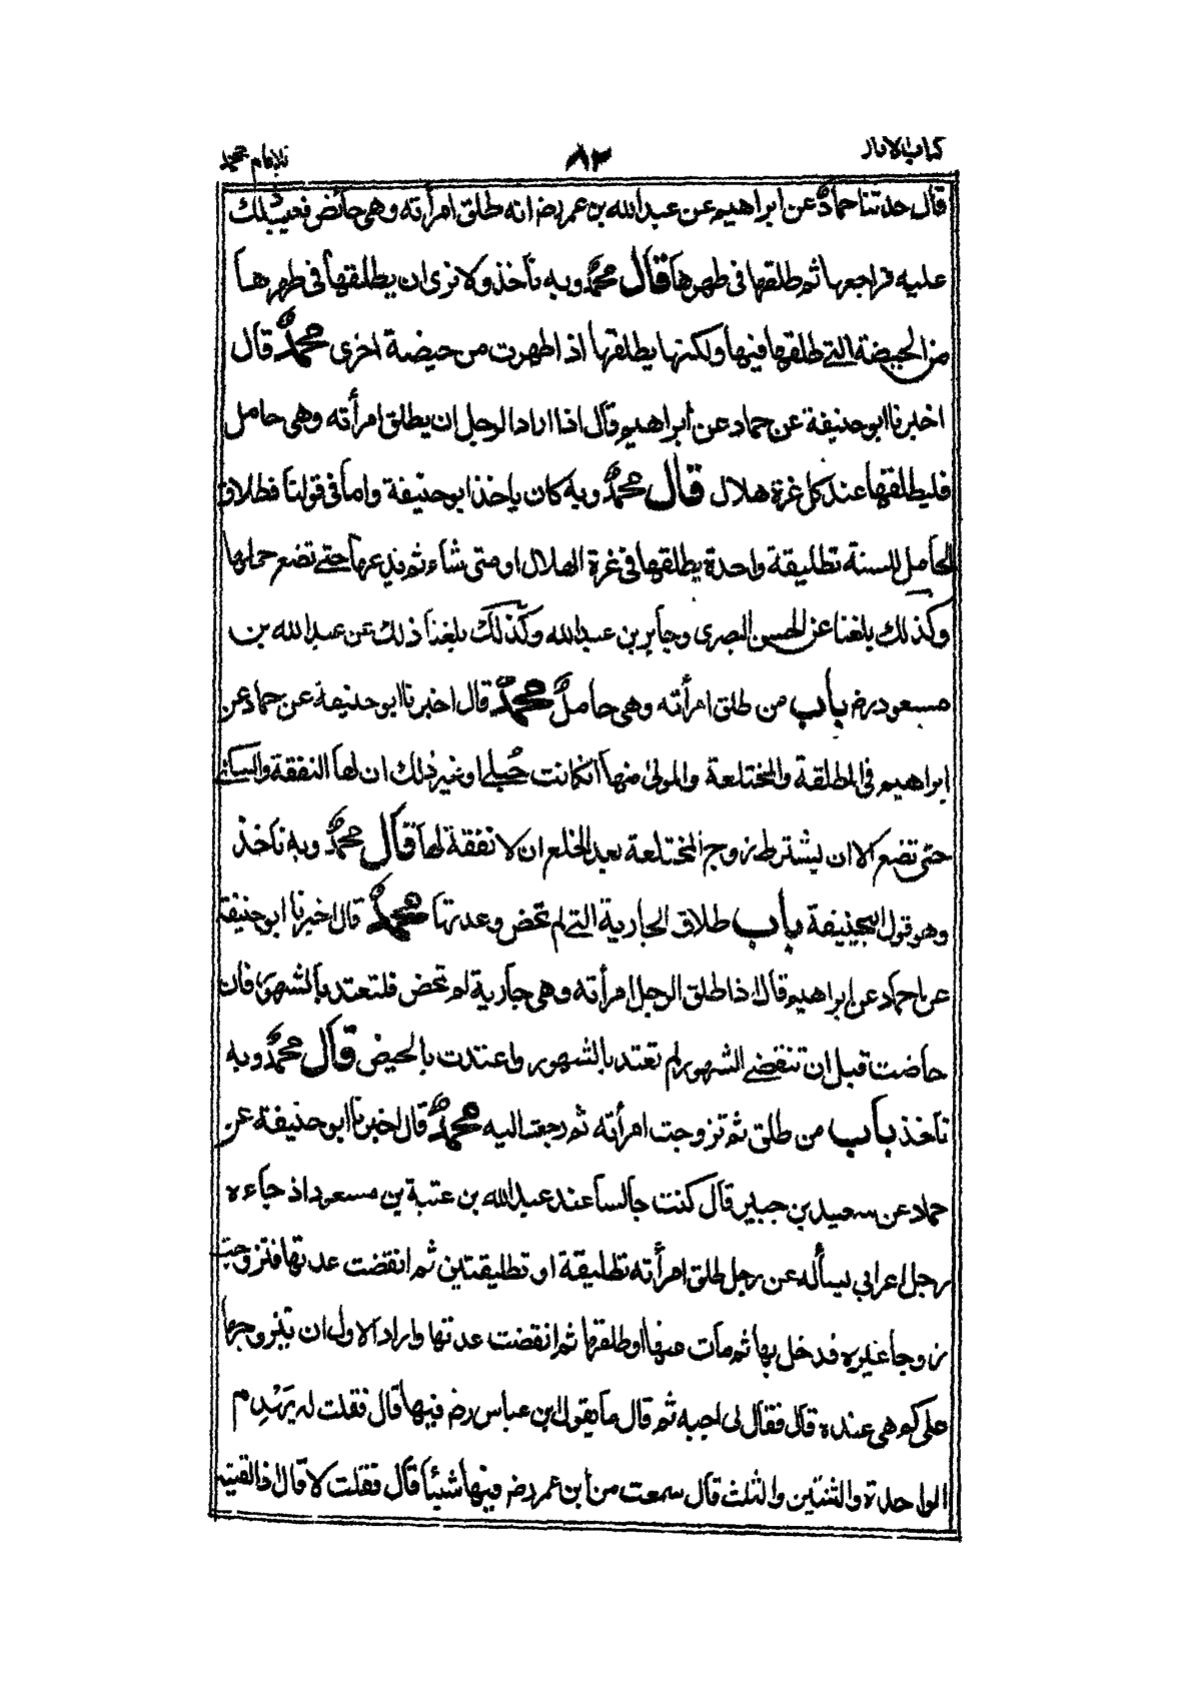 كتاب الآثار ٨٢ للإمام محمد
قال حدثنا حماد عن ابراهيم عن عبد الله بن عمر رضـ انه طلق امرأته وهي حائض فعيب ذلك
عليه فراجعها ثم طلقها في طهرها قال محمد وبه نأخذ ولا نرى ان يطلقها في طهرها
من الحيضة التي طلقها فيها ولكنها يطلقها اذا طهرت من حيضة اخرى محمد قال
اخبرنا ابو حنيفة عن حماد عن ابراهيم قال اذا اراد الرجل ان يطلق امرأته وهي حامل
فليطلقها عند كل غرة هلال قال محمد وبه كان ياخذ ابو حنيفة واما في قولنا فطلاق
الحامل للسنة تطليقة واحدة يطلقها في غرة الهلال او متى شاء ثم يدعها حتى تضع حملها
وكذلك بلغنا عن الحسن البصري وجابر بن عبد الله وكذلك بلغنا ذلك عن عبد الله بن
مسعود رضـ باب من طلق امرأته وهي حامل محمد قال اخبرنا ابو حنيفة عن حماد عن
ابراهيم في المطلقة والمختلعة والمولى منها ان كانت حبلى او غير ذلك ان لها النفقة والسكنى
حتى تضع الا ان يشترط زوج المختلعة بعد الخلع ان لا نفقة لها قال محمد وبه نأخذ
وهو قول ابي حنيفة باب طلاق الجارية التي لم تحض وعدتها محمد قال اخبرنا ابو حنيفة
عن حماد عن ابراهيم قال اذا طلق الرجل امرأته وهي جارية لم تحض فلتعتد بالشهور فان
حاضت قبل ان تنقضي الشهور لم تعتد بالشهور واعتدت بالحيض قال محمد وبه
نأخذ باب من طلق ثم تزوجت امرأته ثم رجعت اليه محمد قال اخبرنا ابو حنيفة عن
حماد عن سعيد بن جبير قال كنت جالسا عند عبد الله بن عتبة بن مسعود اذ جاءه
رجل اعرابي يسأله عن رجل طلق امرأته تطليقة او تطليقتين ثم انقضت عدتها فتزوجت
زوجا غيره فدخل بها ثم مات عنها او طلقها ثم انقضت عدتها واراد الاول ان يتزوجها
على كم هي عنده قال فقال لي اجبه ثم قال ما يقول ابن عباس رضـ فيها قال فقلت له يَهْدِم
الواحدة والثنتين والثلث قال سمعت من ابن عمر رضـ فيها شيئا قال فقلت لا قال اذا لقيته